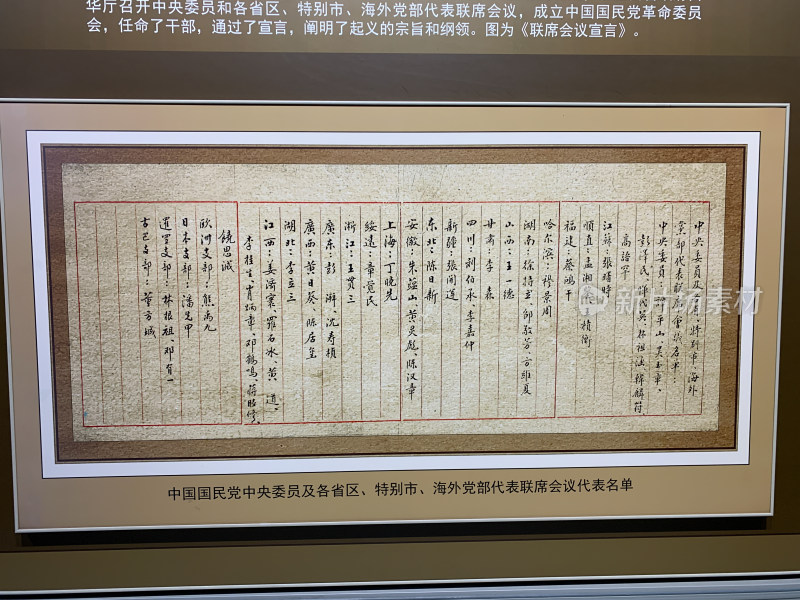 华厅召开中央委员和各省区、特别市、海外党部代表联席会议，成立中国国民党革命委员
会，任命了干部，通过了宣言，阐明了起义的宗旨和纲领。图为《联席会议宣言》。
中央委员及各省、特别市、海外
党部代表联席会议名单：
中央委员：谭平山、吴玉章、
彭泽民、恽代英、林祖涵、韩麟符、
高语罕
江苏：张曙时
顺直：
福建：蔡鸿干
哈尔滨：穆景周
湖南：徐特立、邹敬芳、方维夏
山西：王一德
甘肃：李森
四川：刘伯承、李嘉仲
新疆：张闻道
东北：陈日新
安徽：朱蕴山、黄灵彪、陈汉章
上海：丁晓先
绥远：章觉民
浙江：王贯三
广东：彭湃、沈寿桢
广西：黄日葵、陈居玺
湖北：李立三
江西：姜济寰、罗石冰、黄道、
李桂生、肖炳章、邓鹤鸣、
饶思诚
欧洲支部：熊禹九
日本支部：潘先甲
暹罗支部：林根祖、邓有一
古巴支部：董方城
中国国民党中央委员及各省区、特别市、海外党部代表联席会议代表名单